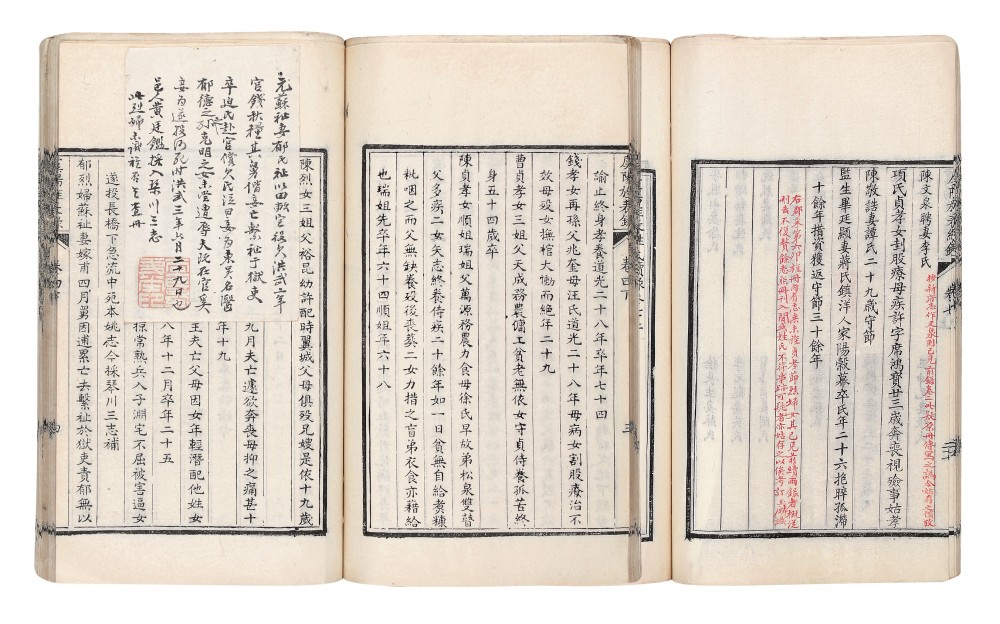 陳文泉聘妻李氏 按新縣志作文泉則已見前錄卷二此疑原冊傳寫之誤今姑存之備攷
項氏貞孝女刲股療母疾許字席鴻寶廿三歲奔喪視殮事姑孝
陳敬誥妻譚氏二十九歲守節
監生畢廷顯妻蔣氏鎮洋人家陽穀墓卒氏年二十六抱孤滯
十餘年措資獲返守節三十餘年
諭止終身孝養道光二十八年卒年七十四
錢孝女再孫父兆奎母汪氏道光二十八年母病女割股療治不
故母歿女撫棺大慟而絕年二十九
曹貞孝女三姐父天成務農傭工貧老無依女守貞侍養孤苦終
身五十四歲卒
陳貞孝女順姐瑞姐父萬源務農力食母徐氏早故弟松泉雙瞽
父多疾二女矢志終養侍疾二十餘年如一日貧無自給煑糠
籺咽之而父無缺養歿後喪葬二女力措之盲弟衣食亦藉給
也瑞姐先卒年六十四順姐年六十八
元蘇祉妻郁氏祉以田畝官役欠洪武二年
官錢秋糧其舅偕妾亡繫祉于獄吏
卒迫氏赴官償欠氏泣曰妾為東吳名醫
郁德之孫克明之女未嘗遭辱夫既在官矣
妾為遂投河死時洪武三年六月二十九日也
邑人黃廷鑑採入琴川三志
此烈婦未識旌否乞查冊
陳烈女三姐父裕昆幼許配時翼城父母俱歿兄嫂是依十九歲
九月夫亡遽欲奔喪母抑之痛甚十
年十九
夫亡父母因女年輕潛配他姓女
八年十二月卒年二十五
掠常熟兵入子淵宅不屈被害逼女
遂投長橋下急流中死本姚志今採琴川三志補
郁烈婦蘇祉妻嫁甫四月舅因逋累亡去繫祉於獄吏責郁無以